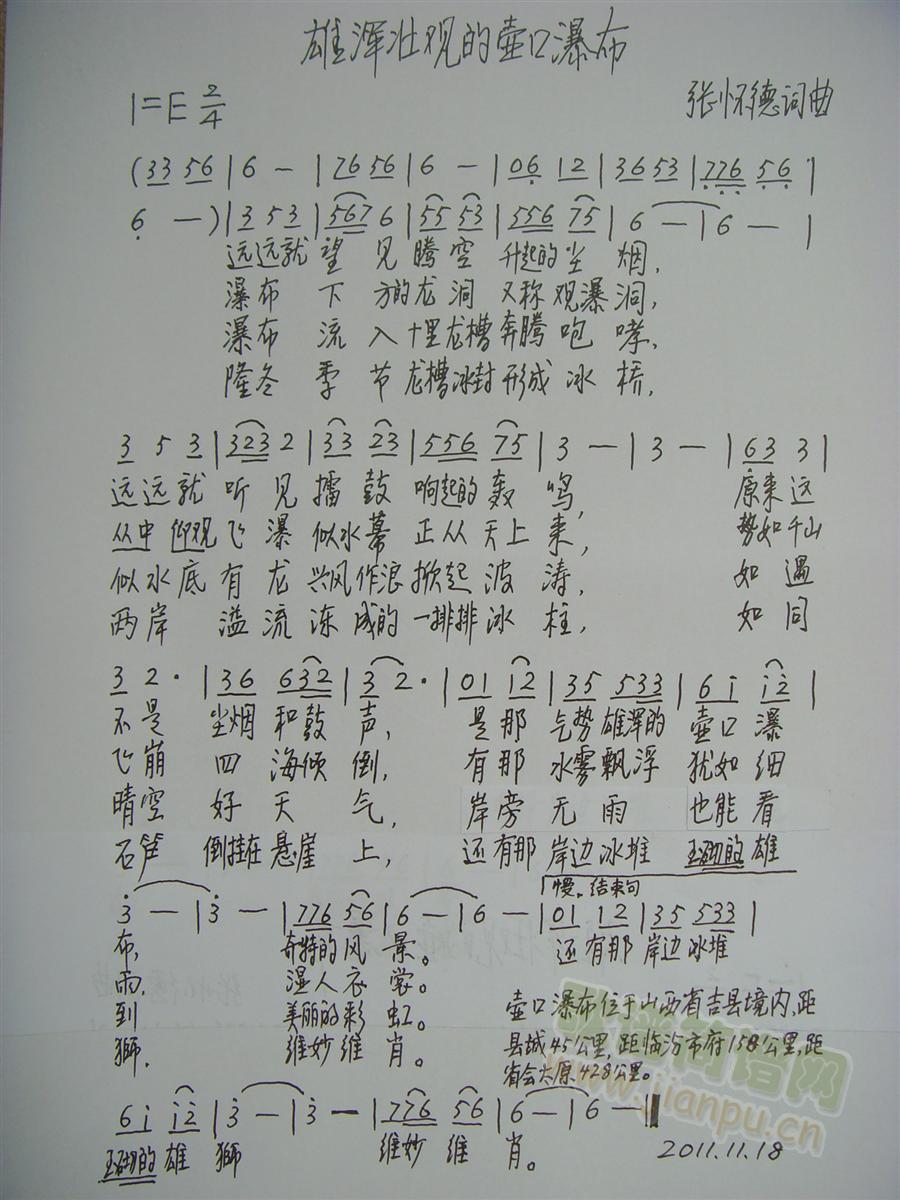 雄浑壮观的壶口瀑布
1=E 2/4
张怀德词曲
(33 56|6 -|76 56|6 -|06 12|36 53|776 56|
6 -)|3 5 3|567 6|55 53|556 75|6 -|6 -|
远远就望见腾空升起的尘烟,
瀑布下方的龙洞又称观瀑洞,
瀑布流入十里龙槽奔腾咆哮,
隆冬季节龙槽冰封形成冰桥,
3 5 3|323 2|33 23|556 75|3 -|3 -|63 3|
远远就听见擂鼓响起的轰鸣,原来远
从中仰观飞瀑似水幕正从天上来,势如千山
似水底有龙兴风作浪掀起波涛,如遇
两岸溢流冻成的一排排冰柱,如同
3 2·|36 632|3 2·|01 i2|35 533|6i i2|
不是尘烟和鼓声,是那气势雄浑的壶口瀑
飞崩四海倾倒,有那水雾飘浮犹如细
晴空好天气,岸旁无雨也能看
石笋倒挂在悬崖上,还有那岸边冰堆玉砌的雄
慢。结束句
3 -|3 -|776 56|6 -|6 -|01 12|35 533|
布,奇特的风景。还有那岸边冰堆
雨,湿人衣裳。
到美丽的彩虹。
狮,维妙维肖。
壶口瀑布位于山西省吉县境内,距
县城45公里,距临汾市府158公里,距
省会太原428公里。
6i i2|3 -|3 -|776 56|6 -|6 -‖
玉砌的雄狮维妙维肖。
2011.11.18
www.jianpu.cn